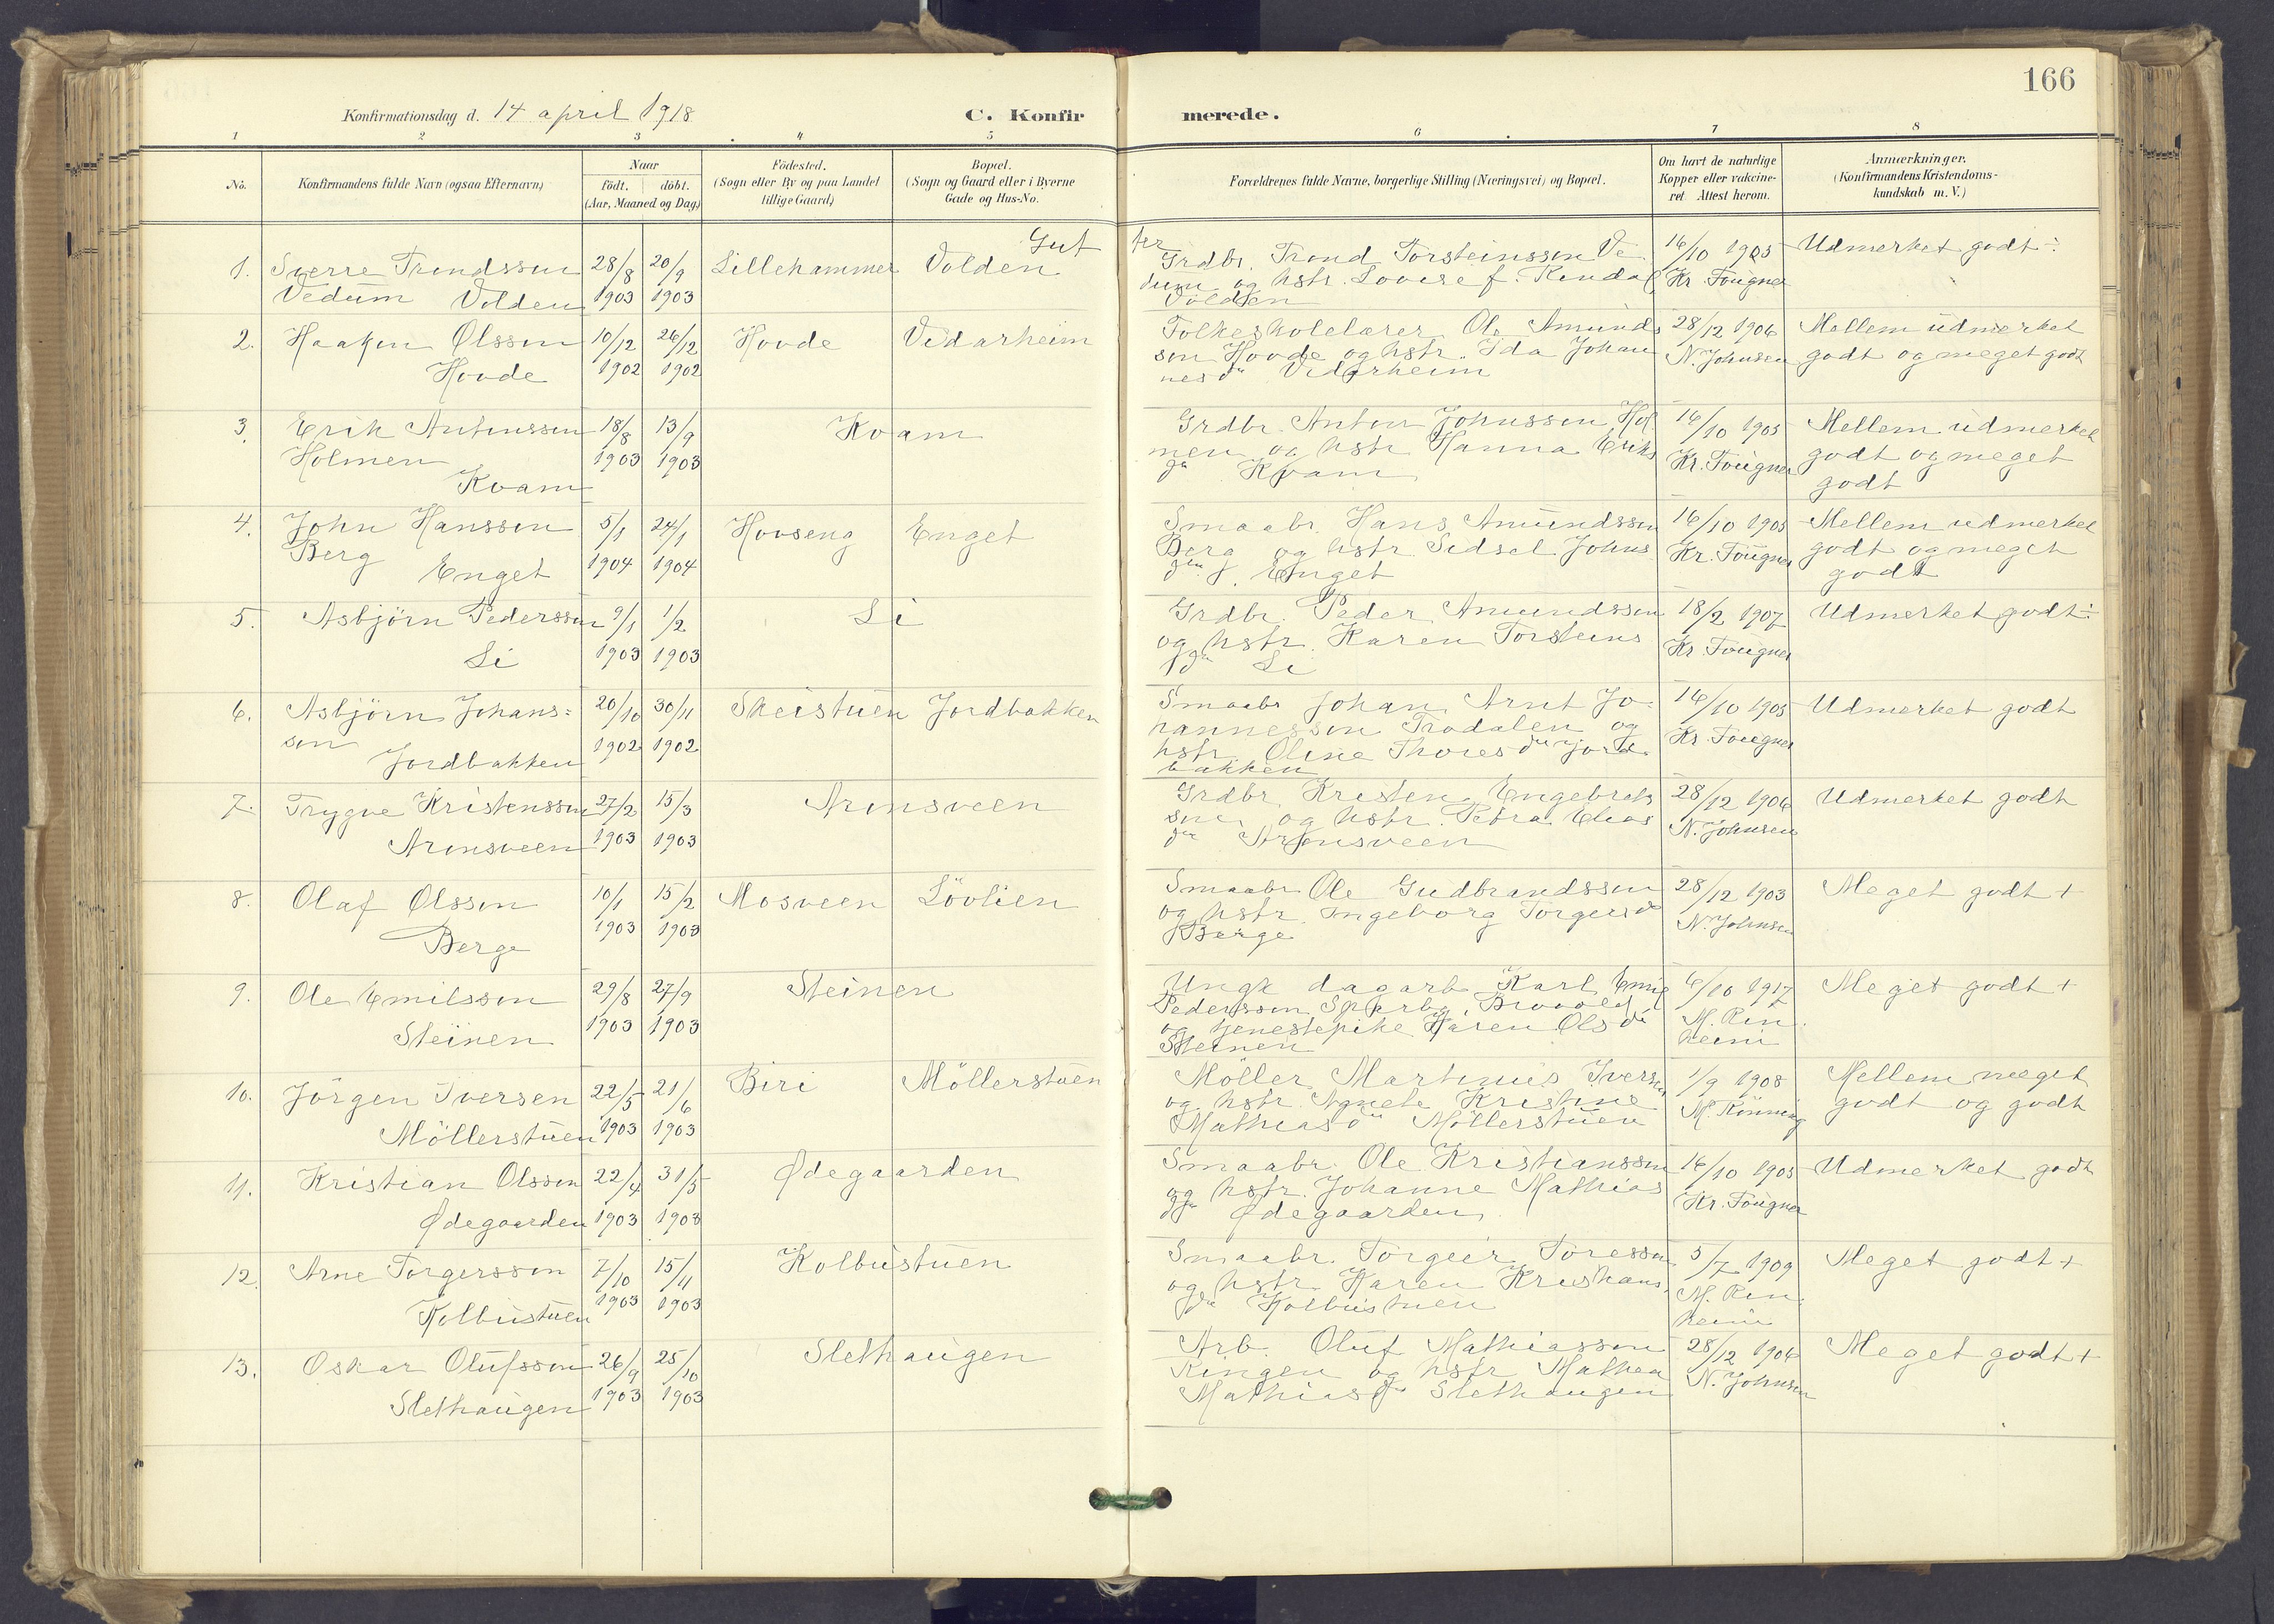 166
Konfirmationsdag d. 14 april 1918
C. Konfir merede.
1 2 3 4 5 6 7 8
No.
Konfirmandens fulde Navn (ogsaa Efternavn)
Naar
födt. döbt.
(Aar, Maaned og Dag)
Födested.
(Sogn eller By og paa Landet
tillige Gaard)
Bopæl.
(Sogn og Gaard eller i Byerne
Gade og Hus-No.
Forældrenes fulde Navne, borgerlige Stilling (Næringsvei) og Bopæl.
Om havt de naturlige
Kopper eller vakcine-
ret Attest herom.
Anmærkninger.
(Konfirmandens Kristendoms-
kundskab m. V.)
Gut ter
1. Sverre Trondssøn 28/8 20/9 Lillehammer Volden
Vedum Volden 1903 1903
Grdbr. Trond Torsteinssøn Ve
dum og hstr. Lovise f. Rindal
Volden
16/10 1905
Kr. Fougner
Udmerket godt ÷
2. Haakon Olssøn 10/12 26/12 Hovde Vidarheim
Hovde 1902 1902
Folkeskolelærer Ole Amunds
søn Hovde og hstr. Ida Johan
nesdr Vidarheim
28/12 1906
N. Johnsen
Mellem udmerket
godt og meget godt
3. Erik Antonssøn 18/8 13/9 Kvam
Holmen 1903 1903
Kvam
Grdbr. Anton Johnssøn Hol
men og hstr. Hanna Eriks
dr Kvam
16/10 1905
Kr. Fougner
Mellem udmerket
godt og meget
godt
4. John Hanssøn 5/1 24/1 Hovseng Enget
Berg Enget 1904 1904
Smaabr. Hans Amundssøn
Berg og hstr. Sidsel Johns
dr Enget
16/10 1905
Kr. Fougner
Mellem udmerket
godt og meget
godt
5. Asbjörn Pederssøn 9/1 1/2 Li
Li 1903 1903
Grdbr. Peder Amundssøn
og hstr. Karen Torsteins
dr Li
18/2 1907
Kr. Fougner
Udmerket godt ÷
6. Asbjörn Johans= 20/10 30/11 Skeistuen Jordbakken
søn Jordbakken 1902 1902
Smaabr Johan Arnt Jo
hannessøn Trodalen og
hstr. Oline Thoresdr Jord
bakken
16/10 1905
Kr. Fougner
Udmerket godt
7. Trygve Kristenssøn 27/2 15/3 Aronsveen
Aronsveen 1903 1903
Grdbr. Kristen Engebrets
søn og hstr. Petra Elias
dr Aronsveen
28/12 1906
N. Johnsen
Udmerket godt
8. Olaf Olssøn 10/1 15/2 Mosveen Lövlien
Berge 1903 1903
Smaabr. Ole Gudbrandssøn
og hstr. Ingeborg Torgersdr
Berge
28/12 1903
N. Johnsen
Meget godt +
9. Ole Emilssøn 29/8 27/9 Steinen
Steinen 1903 1903
Ungk dagarb Karl Emil
Pederssøn
og tjenestepike Karen Olsdr
Steinen
6/10 1917
M. Rin
heim
Meget godt +
10. Jörgen Iversen 22/5 21/6 Biri Möllerstuen
Möllerstuen 1903 1903
Möller Martinus Iversen
og hstr. Agnete Kristine
Mathiasdr Möllerstuen
1/9 1908
M. Rönning
Mellem meget
godt og godt
11. Kristian Olssøn 22/4 31/5 Ødegaarden
Ødegaarden 1903 1903
Smaabr. Ole Kristianssøn
og hstr. Johanne Mathias
dr Ødegaarden
16/10 1905
Kr. Fougner
Udmerket godt
12. Arne Torgerssøn 7/10 15/11 Kolbustuen
Kolbustuen 1903 1903
Smaabr. Torgeir Toressøn
og hstr. Karen Kristians
dr Kolbustuen
5/7 1909
M. Rin
heim
Meget godt +
13. Oskar Olufssøn 26/9 25/10 Slethaugen
Slethaugen 1903 1903
Arb. Oluf Mathiassøn
Ringen og hstr Mathea
Mathiasdr Slethaugen
28/12 1906
N. Johnsen
Meget godt +